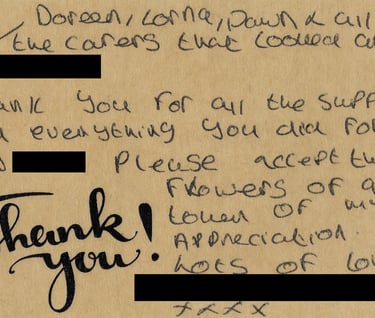 Doreen, Lorna, Dawn & all
the carers that looked a
ank you for all the supp
everything you did fo
Please accept the
Flowers of a
token of m
Appreciation.
Lots of lo
xxxx
Thank
you!